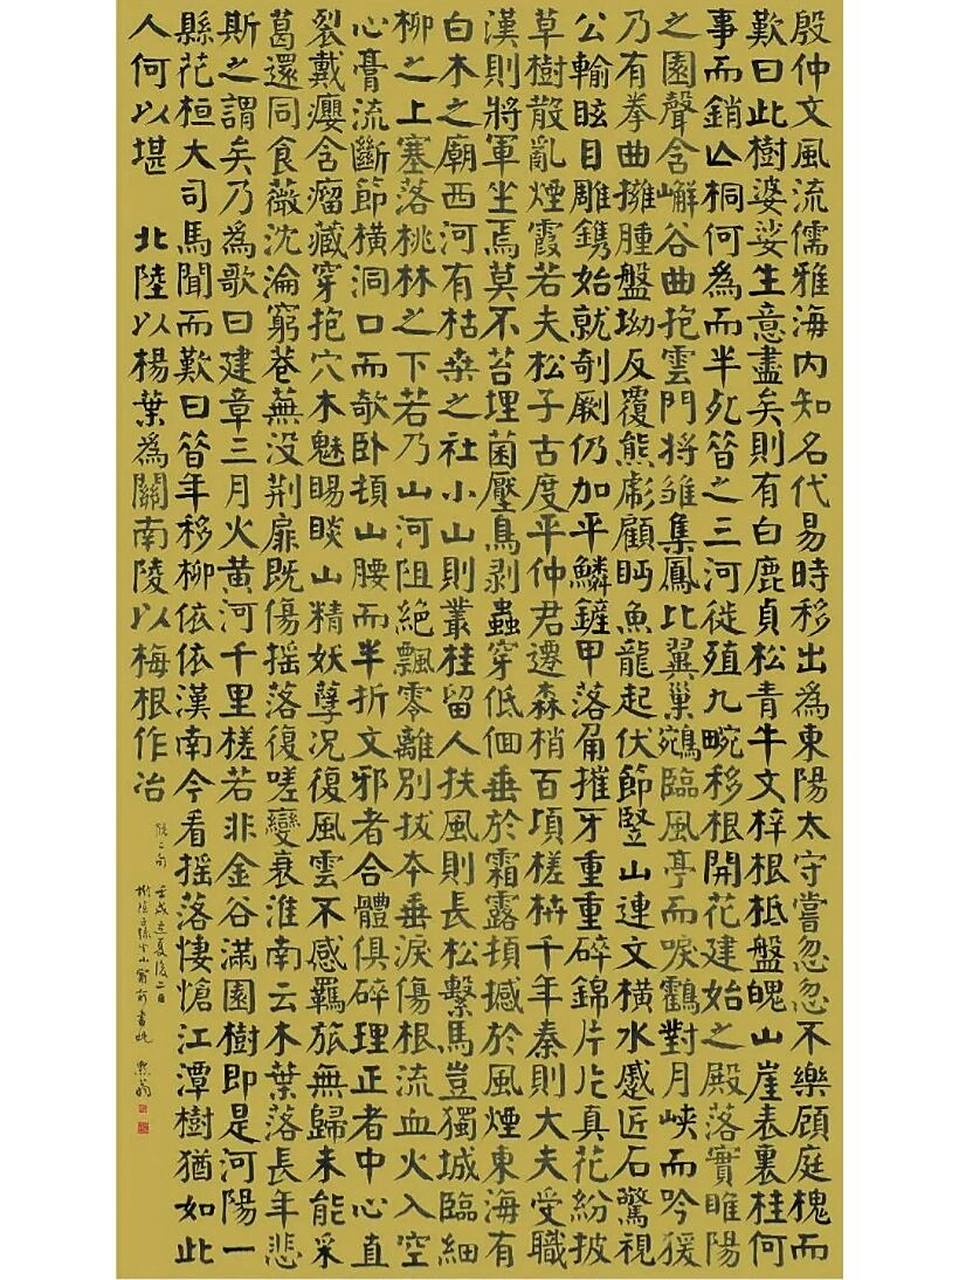 殷仲文風流儒雅海内知名代易時移出為東陽太守嘗忽忽不樂顧庭槐而
歎曰此樹婆娑生意盡矣則有白鹿貞松青牛文梓根柢盤魄山崖表裏桂何
事而銷亾桐何為而半死昔之三河徙殖九畹移根開花建始之殿落實睢陽
之園聲含嶰谷曲抱雲門將雏集鳳比翼巢鵷臨風亭而唳鸖對月峽而吟猨
乃有拳曲擁腫盤坳反覆熊彪顧眄魚龍起伏節竪山連文橫水蹙匠石驚視
公輸眩目雕鐫始就剞劂仍加平鱗鏟甲落角摧牙重重碎錦片片真花紛披
草樹散亂煙霞若夫松子古度平仲君遷森梢百頃槎枿千年秦則大夫受職
漢則將軍坐焉莫不苔埋菌壓鳥剥蟲穿低佪垂於霜露頓撼於風煙東海有
白木之廟西河有枯桒之社小山則叢桂留人扶風則長松繫馬豈獨城臨細
柳之上塞落桃林之下若乃山河阻絶飄零離別拔本垂淚傷根流血火入空
心膏流斷節橫洞口而欹卧頓山腰而半折文邪者合體俱碎理正者中心直
裂戴癭含瘤藏穿抱穴木魅睗睒山精妖孽况復風雲不感羈旅無歸未能采
葛還同食薇沈淪窮巷蕪没荆扉既傷摇落復嗟變衰淮南云木葉落長年悲
斯之謂矣乃為歌曰建章三月火黄河千里槎若非金谷滿園樹即是河陽一
縣花桓大司馬聞而歎曰昔年移柳依依漢南今看摇落悽愴江潭樹猶如此
人何以堪 北陸以楊葉為關南陵以梅根作冶
脱二句 壬戌立夏後二日
書此